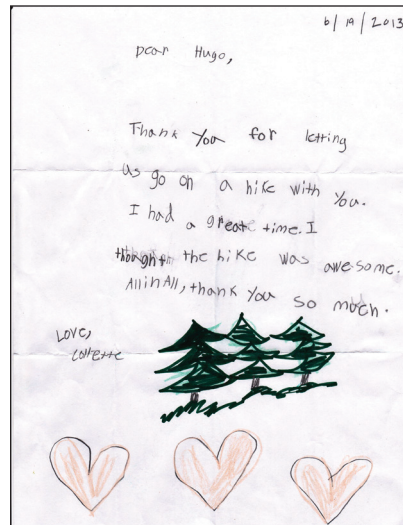 6/19/2013
Dear Hugo,
Thank you for letting
us go on a hike with you.
I had a great time. I
thought the hike was awesome.
All in All, thank you so much.
Love,
Collette